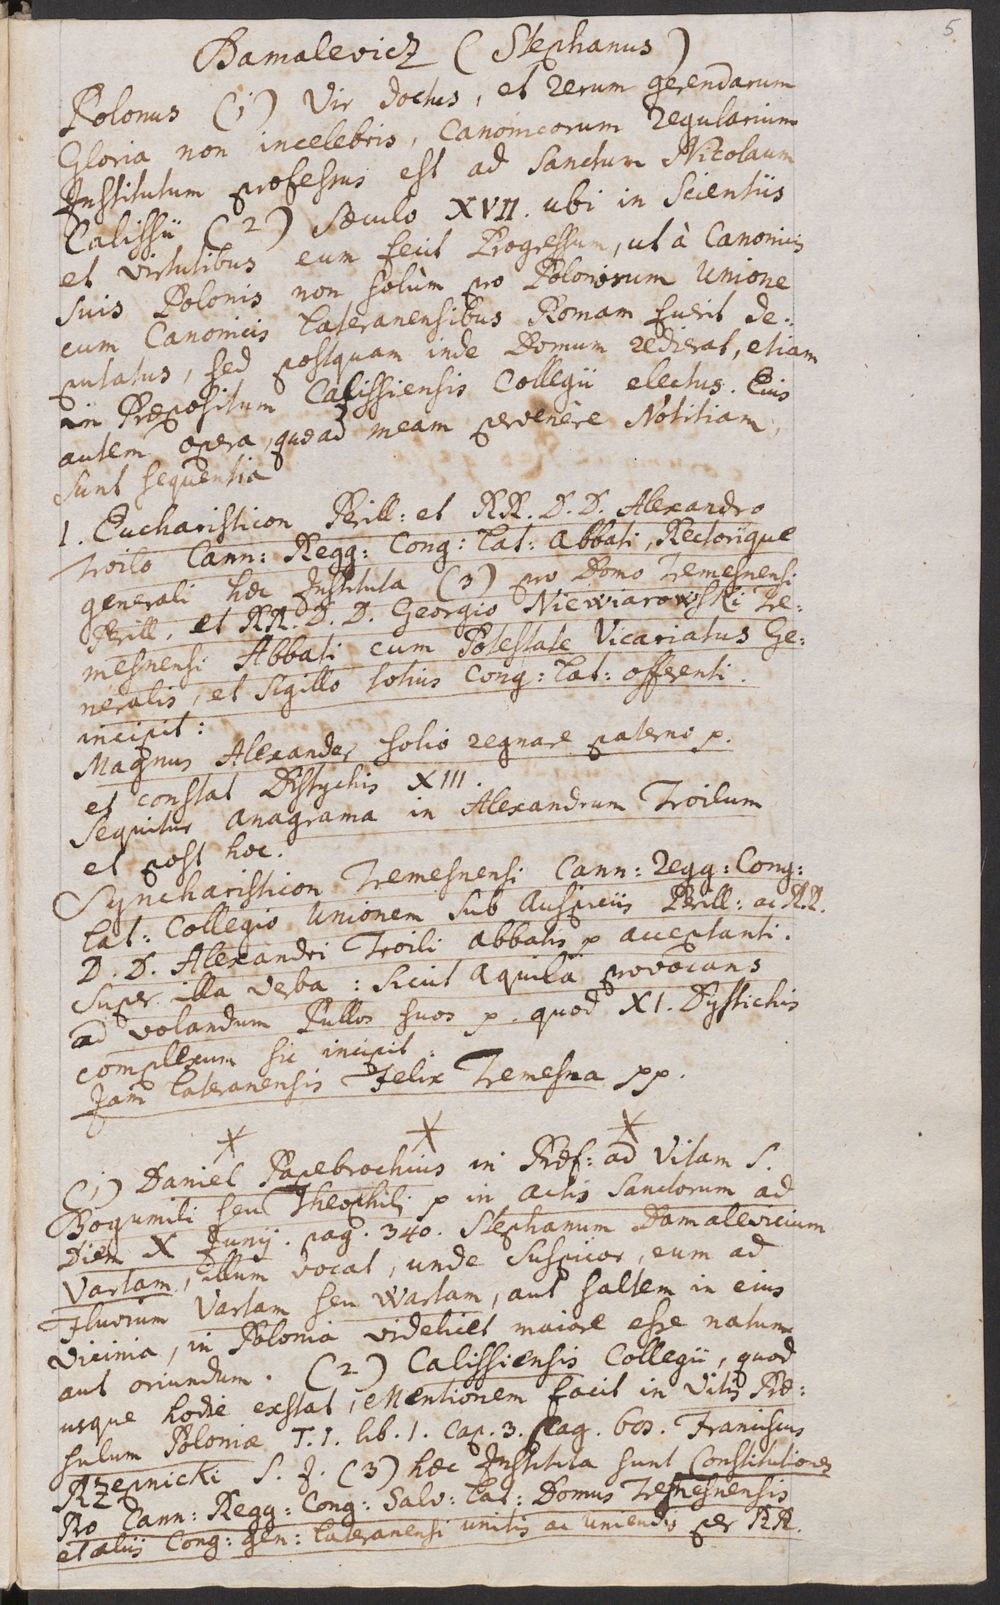 5
Damalevicz (Stephanus)
Polonus (1) Vir doctus, et rerum gerendarum
Gloria non incelebris, Canonicorum Regularium
Institutum professus est ad Sanctum Nicolaum
Calissii (2) Sæculo XVII. ubi in Scientiis
et virtutibus eum fecit Progressum, ut à Canonicis
suis Polonis non solùm pro Polonorum Unione
cum Canonicis Lateranensibus Romam fuerit de:
putatus, sed postquam inde Domum redierat, etiam
in Præpositum Calissiensis Collegii electus. Eius
autem opera, quæ ad meam pervenêre Notitiam,
sunt sequentia
1. Eucharisticon Perill: et RR. D. D. Alexandro
Troilo Cann: Regg: Cong: Lat: Abbati, Rectorique
generali hæc Instituta (3) pro Domo Tremesnensi
Perill, et RR. D. D. Georgio Niewiarowski Tre:
mesnensi Abbati cum Potestate Vicariatus Ge:
neralis, et Sigillo totius Cong: Lat: offerenti.
incipit:
Magnus Alexander solio regnare paterno p.
et constat Distychis XIII.
Sequitur anagrama in Alexandrum Troilum
et post hoc.
Syncharisticon Tremesnensi Cann: regg: Cong:
Lat: Collegio Unionem sub Auspiciis Perill: ac R.R.
D. D. Alexandri Troili abbatis p acceptanti.
Super illa verba: Sicut aquila provocans
ad volandum Pullos suos p. quod XI. Dystichis
complexum sic incipit:
Jam Lateranensis Felix Tremesna pp.
(1) Daniel Papebrochius in Præf: ad Vitam S.
Bogumili seu Theophili p in actis Sanctorum ad
Diem X Junij. pag. 340. Stephanum Damalevicium
Vartam, illum vocat, unde suspicor, eum ad
Fluvium Vartam seu Wartam, aut saltem in eius
vicinia, in Polonia videlicet maiore esse natum
aut oriundum. (2) Calissiensis Collegii, quod
usque hodie exstat, Mentionem facit in Vitis Præ:
sulum Poloniæ T. 1. lib. 1. Cap. 3. pag. 60. Franciscus
Rzepnicki S. J. (3) hæc Instituta sunt Constitutiones
Pro Cann: Regg: Cong: Salv: Lat: Domus Tremesnensis
et aliis Cong: gen: Lateranensi unitis ac uniendis per RR.